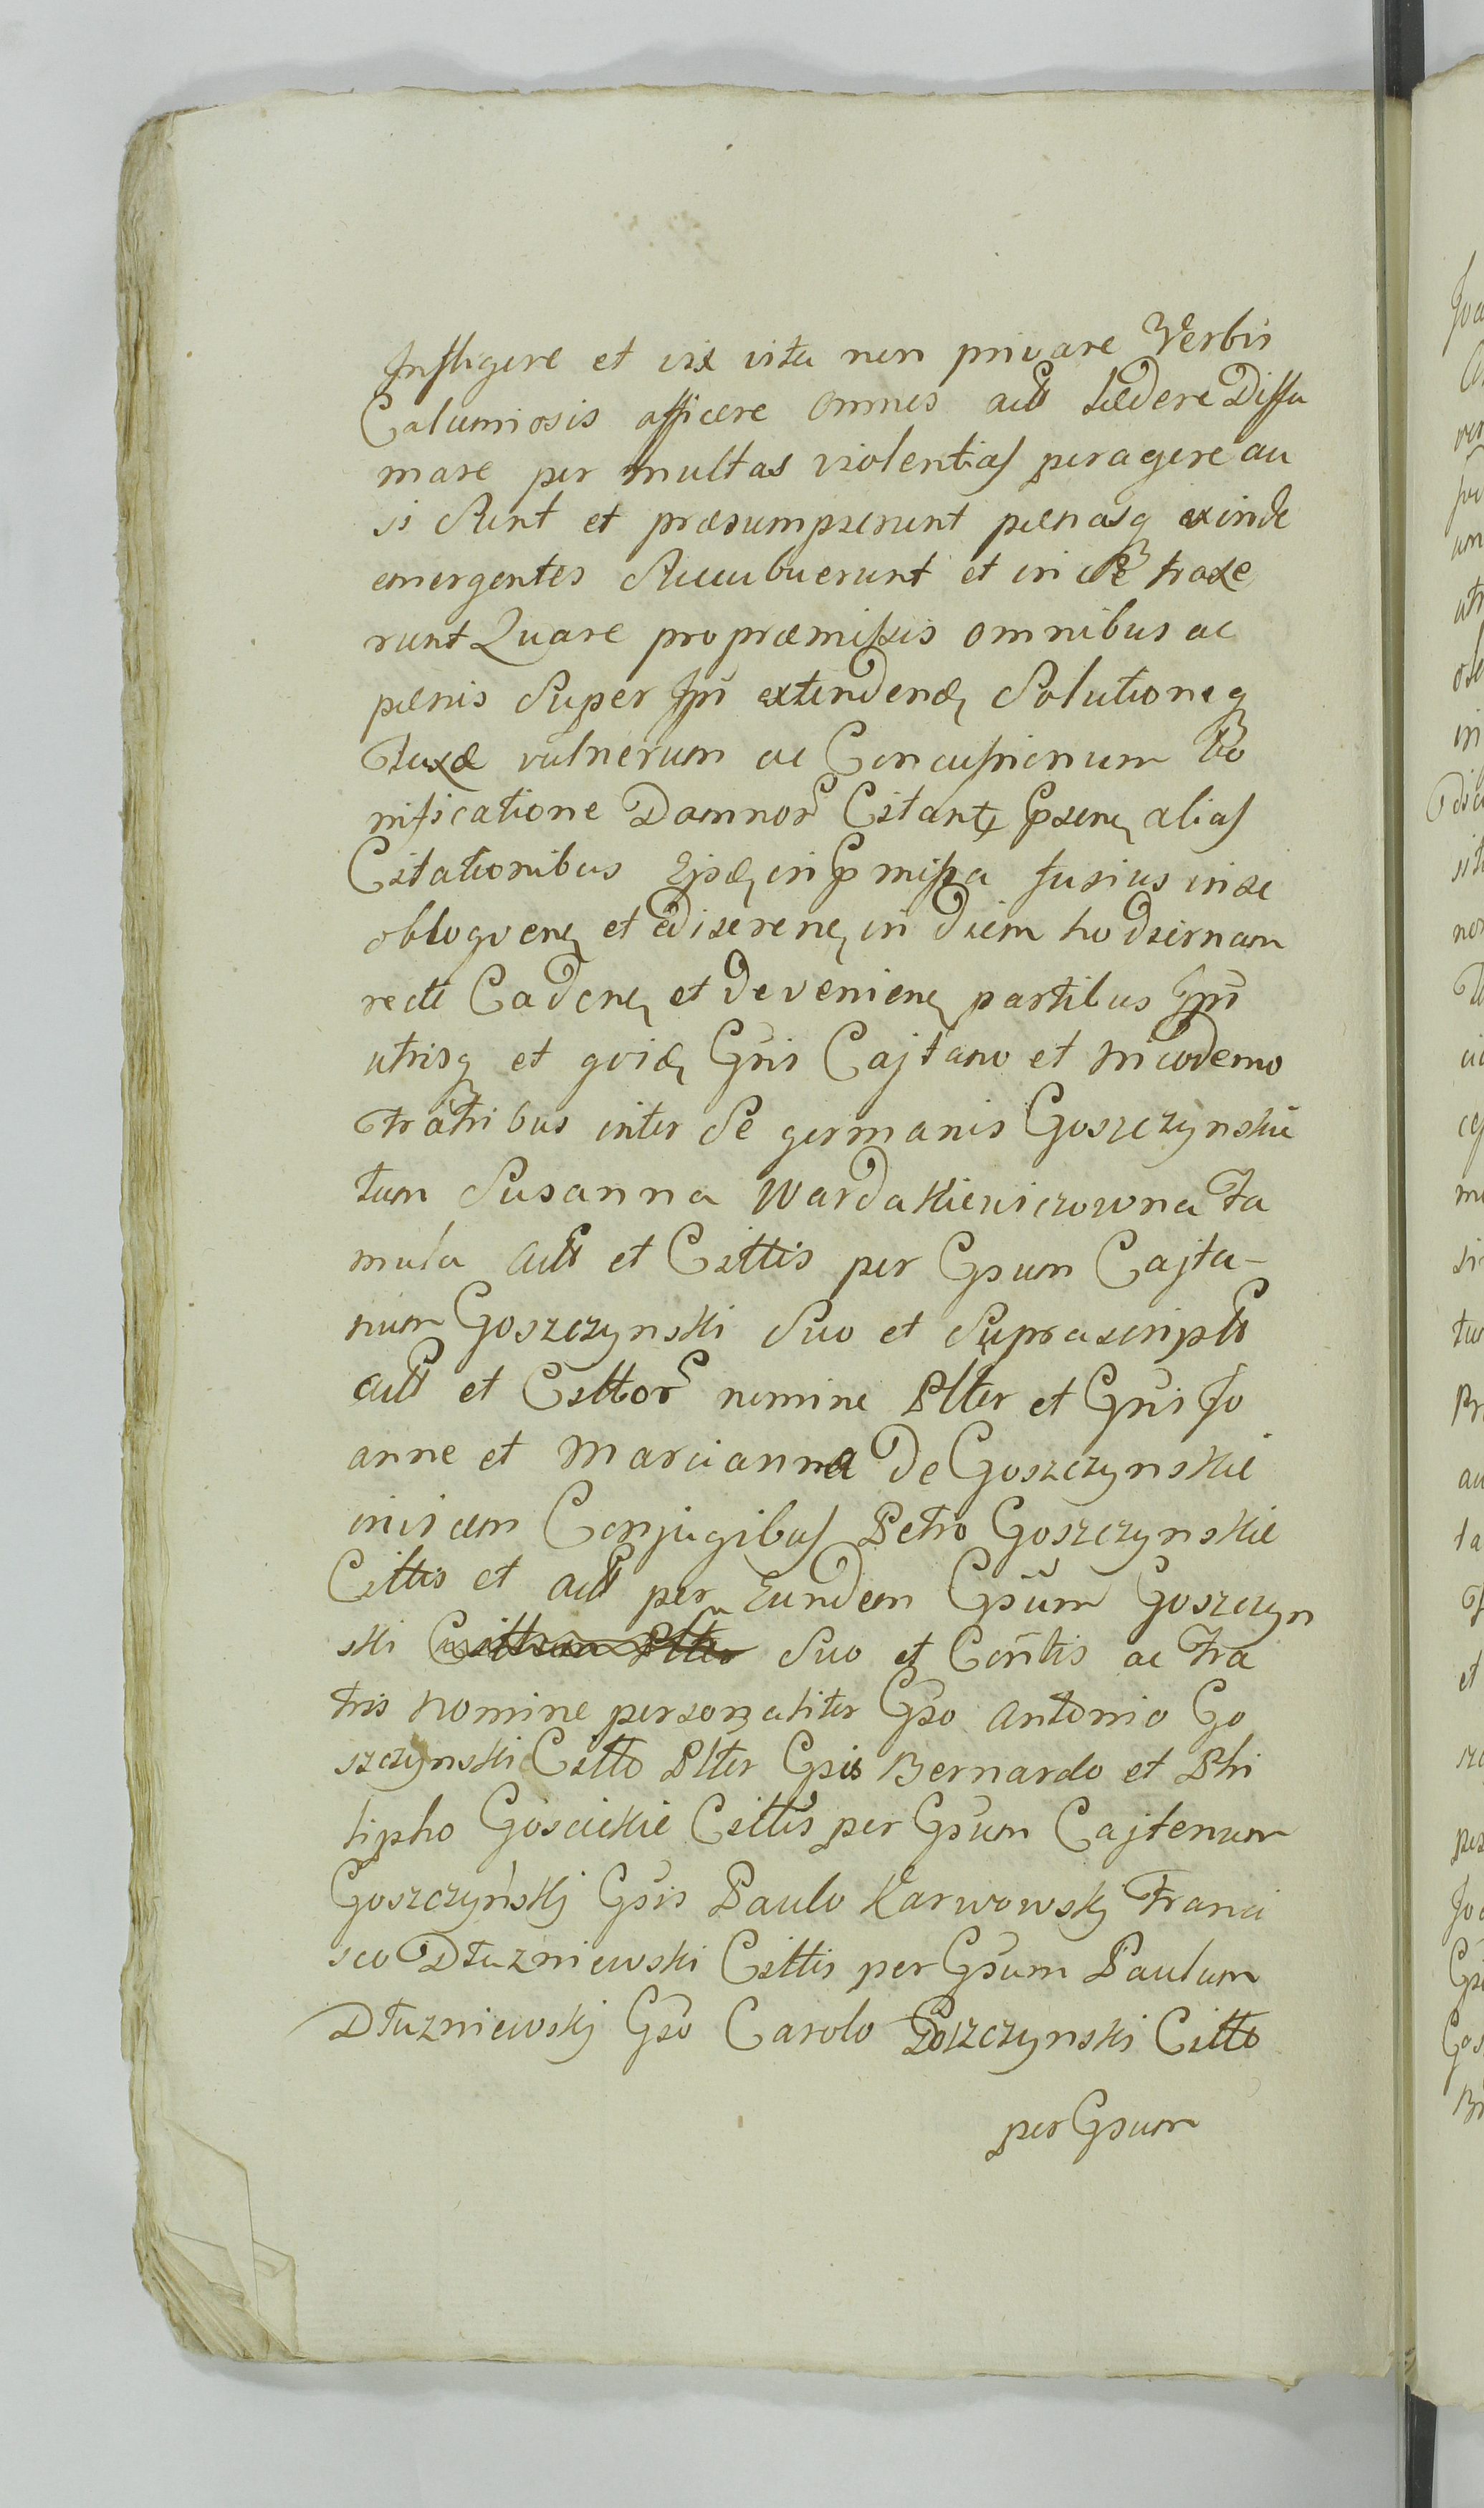 Infligere et vix vita non privare Verbis
Calumniosis afficere omnes actt lædere Diffa
mare per multas violentias peragere au
si sunt et præsumpserunt pænasq exinde
emergentes succubuerunt et in se traxe
runt Quare pro præmissis omnibus ac
pænis super Ipsis extendend Solutioneq
Taxæ vulnerum ac Concussionum bo
nificatione Damnor Citant Gsene alias
Citationibus Ejsd in p missa fusius in se
obloquen et ediseren in diem hodiernam
recte Caden et devenien partibus Ipsis
utrisq et quid Gsis Cajtano et Nicodemo
Fratribus inter se germanis Goszczynskie
tum Susanna Wardakiewiczowna Fa
mula actt et Cittis per Gsum Cajta-
num Goszczynski Suo et Suprascriptt
actt et Cittor nomine Pltter et Gsis Jo
anne et Marcianna De Goszczynskie
invicem Conjugibus Petro Goszczynskie
Cittis et actt per Eundem Gsum Goszczyn
ski Suo et Contis ac Fra
tris nomine personaliter Gso Antonio Go
szczynski Citto Pltter Gsis Bernardo et Phi
lipho Gościckie Cittis per Gsum Cajtenum
Goszczyńskj Gsis Paulo Karwowskj Franci
sco Dłuzniewski Cittis per Gsum Paulum
Dłuzniewskj Gso Carolo Goszczynski Citto
per Gsum